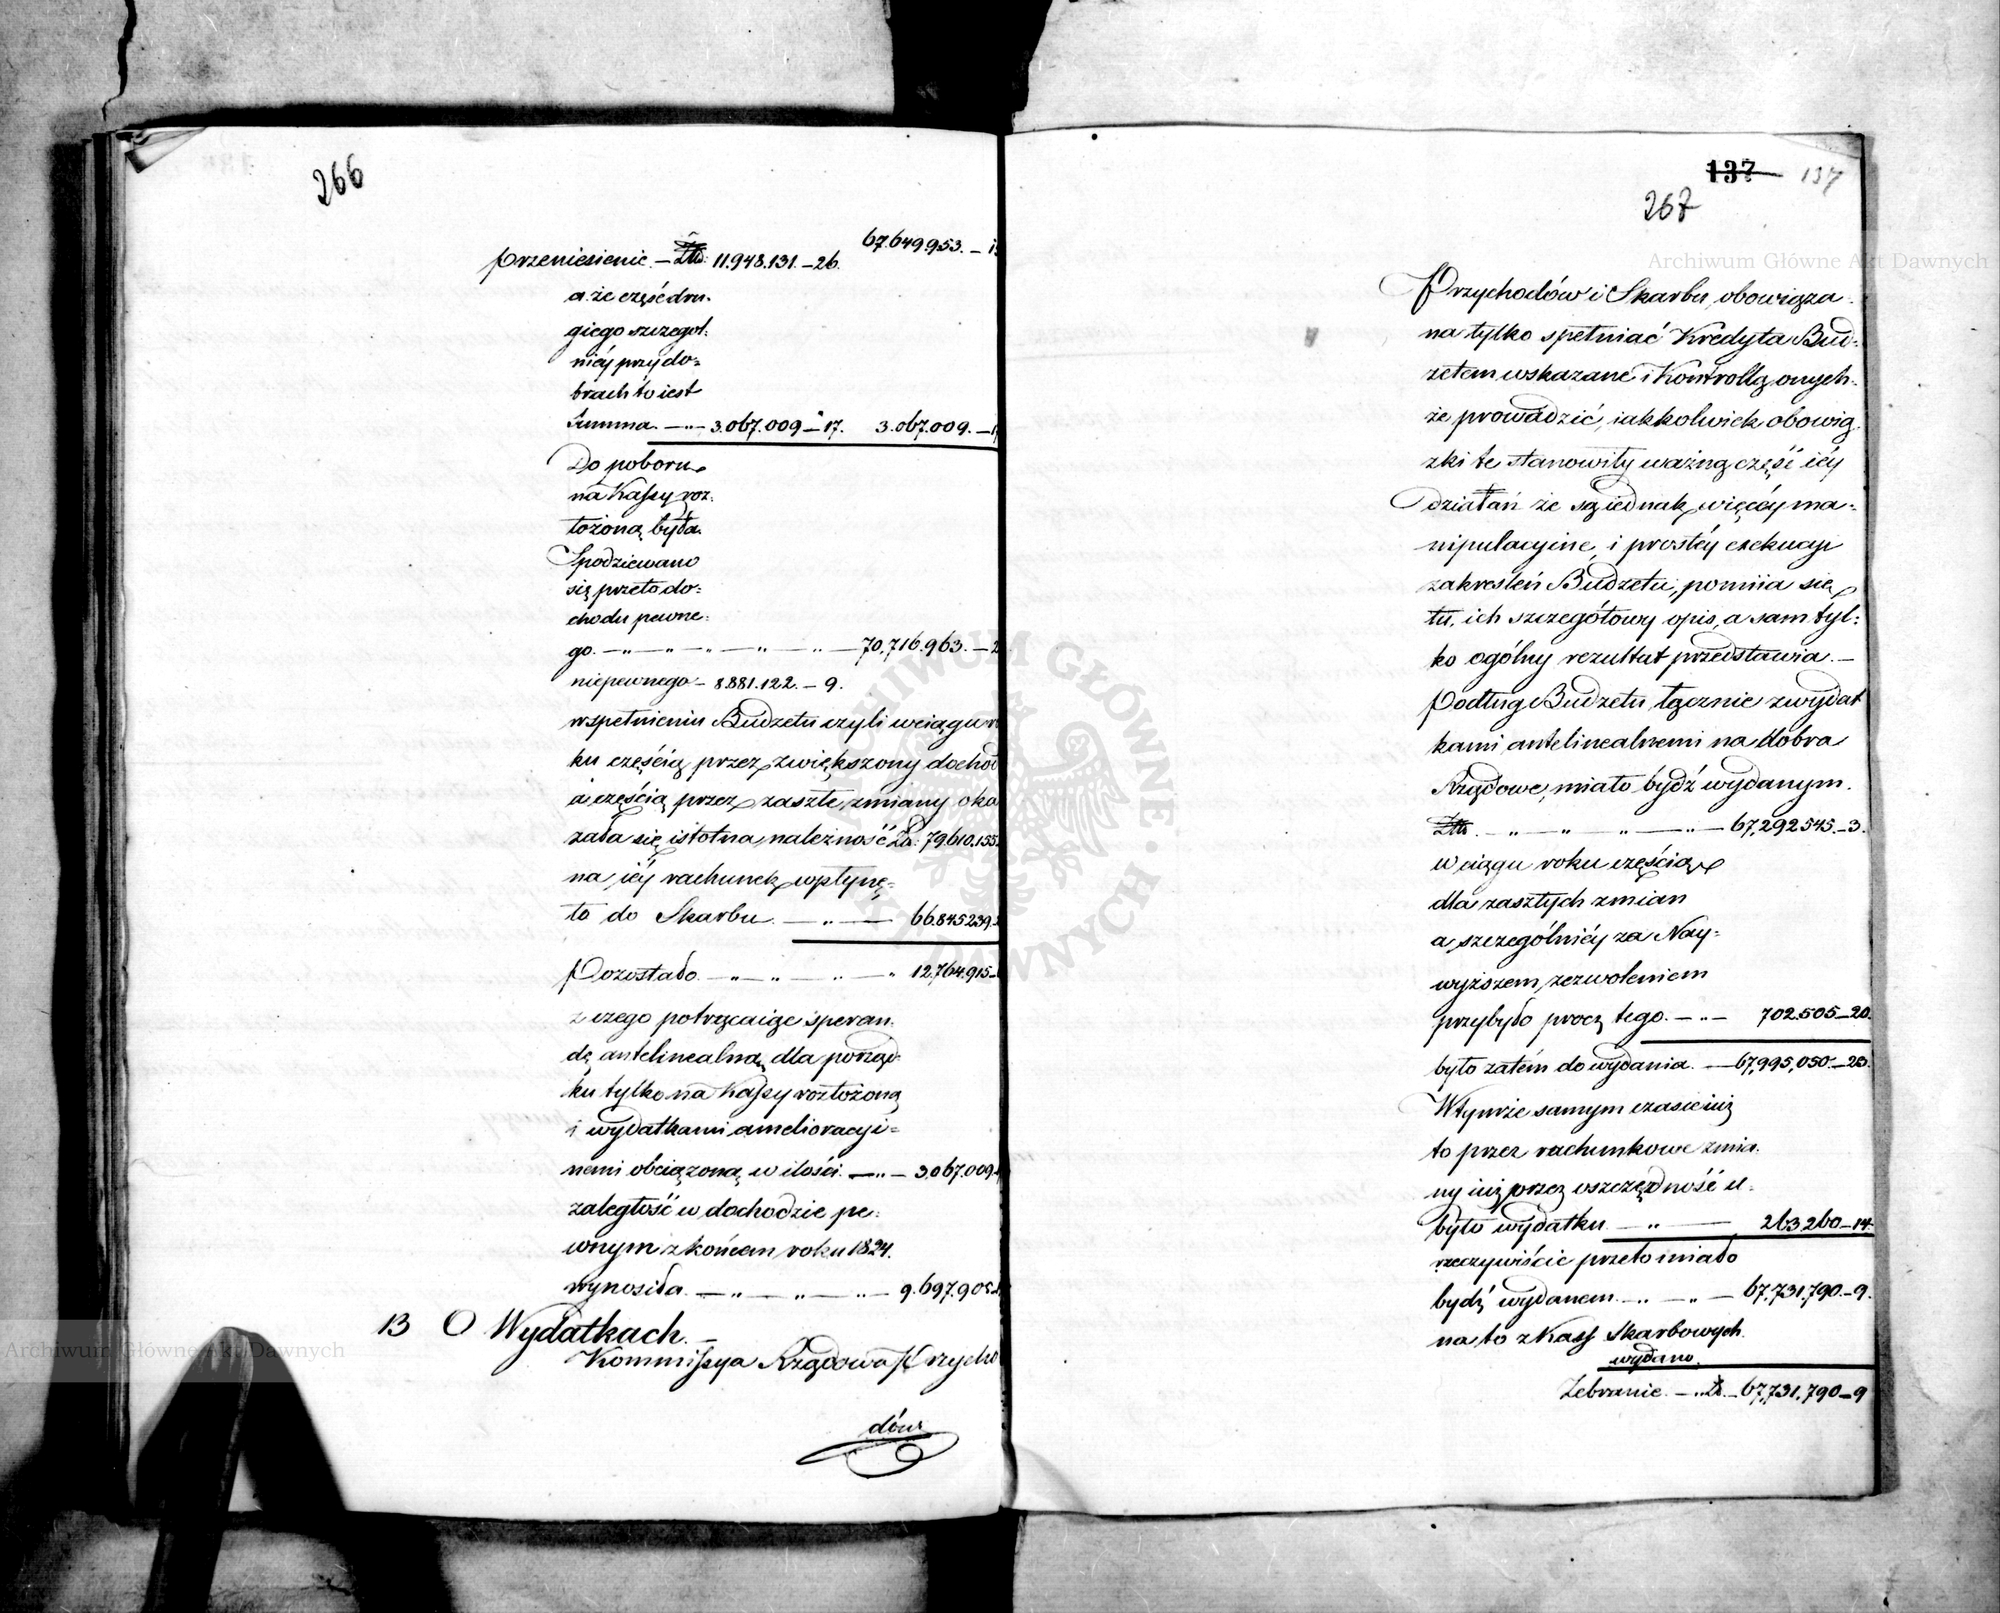 266
67.649.953. –
przeniesienie. – Złtt: 11.948.131. – 26.
a że część dru-
giego szczegól-
niéy przy do-
brach to iest
Summa. –„– 3.067.009 – 17. 3.067.009. –
Do poboru
na Kassy roz-
łożoną była.
Spodziewano
się przeto do-
chodu pewne-
go. –„– „ –„– „ – „ – 70,716.963. – 2
niepewnego – 8.881.122. – 9.
w spełnieniu Budżetu czyli w ciągu ro
ku częścią przez zwiększony dochod
a częścią przez zaszłe zmiany oka
zała się istotna należność Zł: 79.610.155.
na iéy rachunek wpłynę-
ło do Skarbu. –„– 66.845239.
Pozostało. –„– „ – „ – „ 12,764.915 –
z czego potrącaiąc speran-
dę antelinealną dla porząd-
ku tylko na Kassy rozłożoną
i wydatkami amelioracyi-
nemi obciążoną w ilości. –„– 3.067.009
zaległość w dochodzie pe-
wnym z końcem roku 1824.
wynosiła. –„– „ –„– 9.697.905
B O Wydatkach. –
Kommissya Rządowa Przycho
dów
137 137
267
Archiwum Główne Akt Dawnych
Przychodów i Skarbu, obowiąza-
na tylko spełniać Kredyta Bud-
żetem wskazane i Kontrollą onych-
że prowadzić, iakkolwiek obowią-
zki te stanowiły ważną część iéy
działań że są iednak więcéy ma-
nipulacyine, i prostéy exekucyi
zakreśleń Budżetu, pomiia się
tu, ich szczegółowy opis, a sam tyl-
ko ogólny rezultat przedstawia. –
Podług Budżetu, łącznie z wydat
kami antelinealnemi na dobra
Rządowe, miało bydź wydanym.
Złtt. –„– „ –„– 67,292.545. – 3.
w ciągu roku częścią
dla zaszłych zmian
a szczególniéy za Nay-
wyższem zezwoleniem
przybyło procz tego. –„– 702.505 – 20.
było zatém do wydania. – 67,995,050. – 23.
W tymże samym czasie iuż
to przez rachunkowe zmia-
ny iuż przez oszczędność u-
było wydatku. –„– 263.260 – 14.
rzeczywiście przeto miało
bydź wydanem. –„– „ – 67,731,790. – 9.
na to z Kass Skarbowych
wydano.
Zebranie. –„ Zł. – 67,731,790 – 9
Archiwum Główne Akt Dawnych
ARCHIWUM GŁÓWNE AKT DAWNYCH